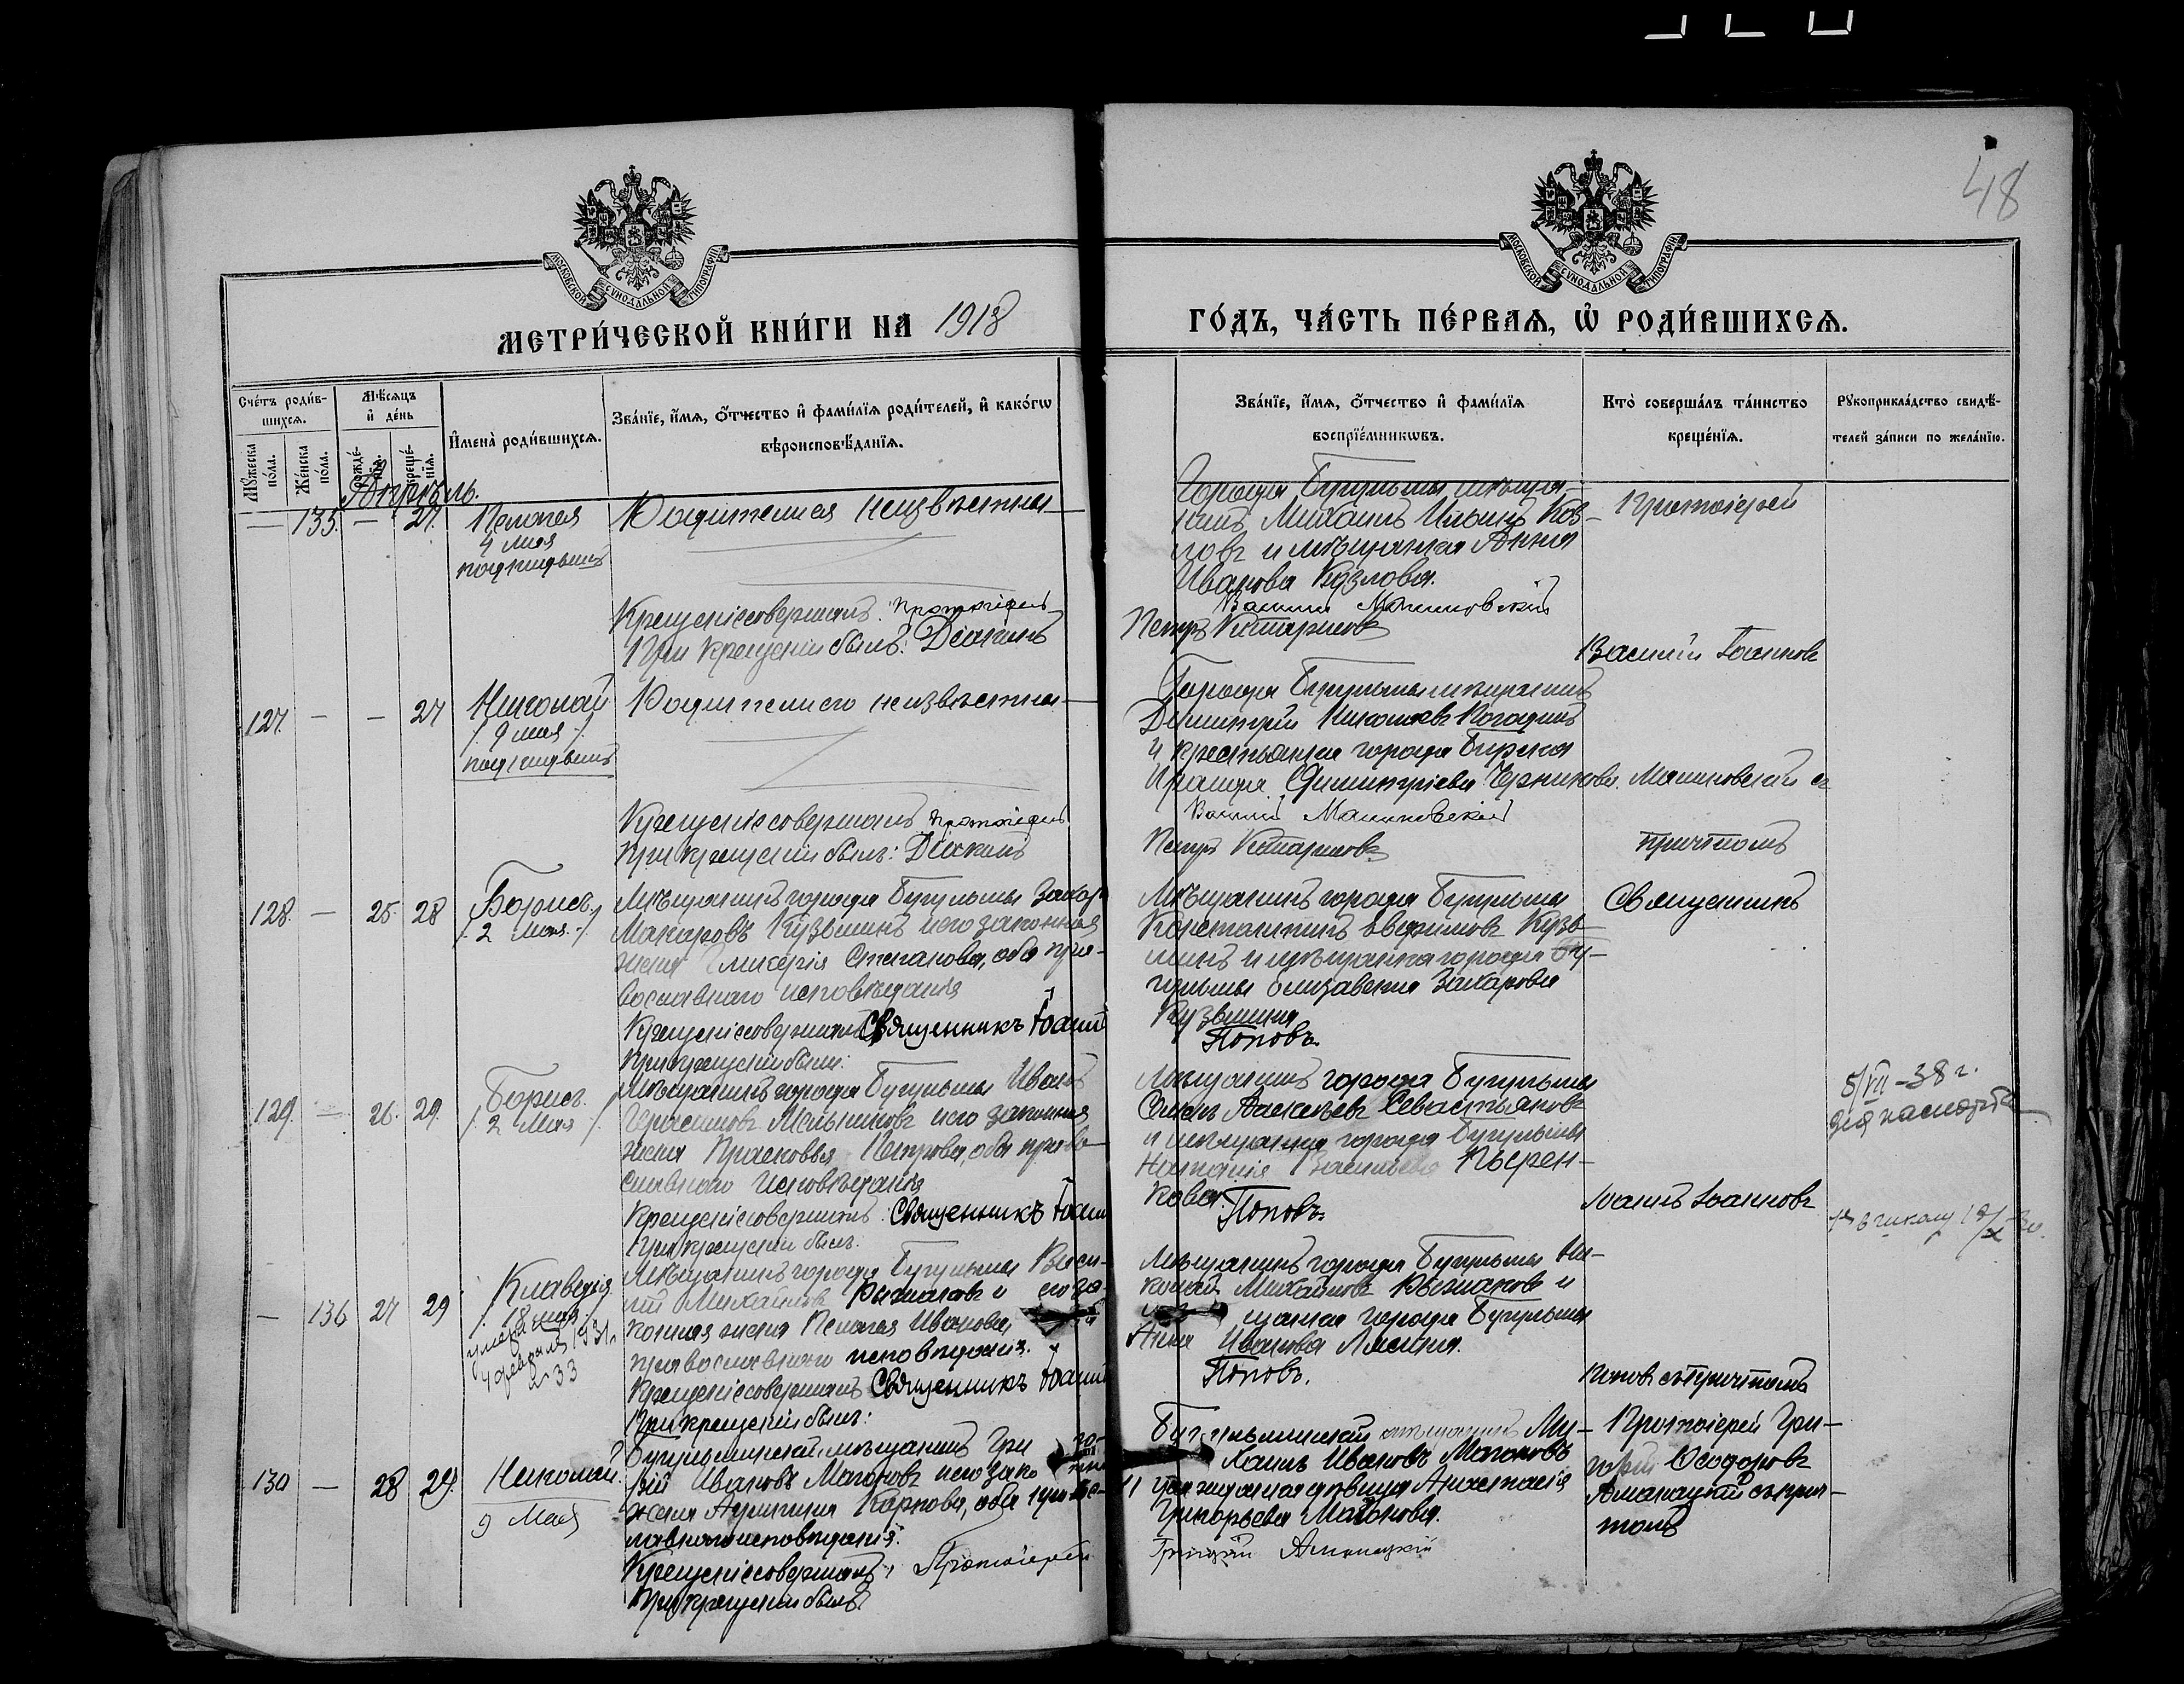 48
МОСКОВСКОЙ СУНОДАЛЬНОЙ ТИПОГРАФІИ
МОСКОВСКОЙ СУНОДАЛЬНОЙ ТИПОГРАФІИ
МЕТРИ́ЧЕСКОЙ КНИ́ГИ НА 1918
ГО́ДЪ, ЧА́СТЬ ПЕ́РВАѦ, Ѡ҆ РОДИ́ВШИХСѦ.
Сче́тъ роди́в-
шихсѧ.
Мꙋ́жеска по́ла.
Же́нска по́ла.
Мѣ́сѧцъ
и҆ де́нь
рожде́-
нїѧ.
креще́-
нїѧ.
И҆мена̀ роди́вшихсѧ.
Зва́нїе, и҆́мѧ, ѻ҆́тчество и҆ фами́лїѧ роди́телей, и҆ како́гѡ
вѣроисповѣ́данїѧ.
Зва́нїе, и҆́мѧ, ѻ҆́тчество и҆ фами́лїѧ
воспрїе́мникѡвъ.
Кто̀ соверша́лъ та́инство
креще́нїѧ.
Рꙋкоприкла́дство свидѣ́-
телей за́писи по жела́нїю.
Апрѣль.
— 135. — 27.
Пелагея
4 мая
подкидышъ
Родители ея неизвѣстны
Крещеніе совершалъ: протоіерей
При крещеніи былъ: Діаконъ
Города Бугульмы мѣща-
нинъ Михаилъ Ильинъ Коз-
ловъ и мѣщанка Анна
Иванова Козлова.
Василій Малиновскій
Петръ
Протоіерей
127. — — 27
Николай
/ 9 мая /
подкидышъ
Родители его неизвѣстны
Крещеніе совершалъ протоіерей
При крещеніи былъ: Діаконъ
Города Бугульмы мѣщанинъ
Димитрій Николаевъ
и крестьянка города Бирска
Ираида Димитріева
Василій Малиновскій
Петръ
Василій Іоанновъ
Малиновскій съ
причтомъ
128. — 25. 28
Борисъ
/ 2 Мая /
Мѣщанинъ города Бугульмы Захаръ
Макаровъ Кузьминъ и его законная
жена Гликерія Степанова, оба пра-
вославнаго исповѣданія
Крещеніе совершалъ Священникъ Іоаннъ
При крещеніи былъ:
Мѣщанинъ города Бугульмы
Константинъ Кузь-
минъ и мѣщанка города Бу-
гульмы Елизавета Захарова
Кузьмина
Поповъ.
Священникъ
129. — 26. 29.
Борисъ
/ 2 Мая /
Мѣщанинъ города Бугульмы Иванъ
Герасимовъ Мельниковъ и его законная
жена Прасковья Петрова, оба право-
славнаго исповѣданія
Крещеніе совершалъ: Священникъ Іоаннъ
При крещеніи былъ:
Мѣщанинъ города Бугульмы
Алексѣевъ Севастьяновъ
и мѣщанка города Бугульмы
Наталія Васильева
кова
Поповъ.
Іоаннъ Іоанновъ
5/VII-38 г.
для паспорта
— 136 27 29
Клавдія
/ 18 мая /
4 февраля 1931 г.
№ 33
Мѣщанинъ города Бугульмы Васи-
лій Михайловъ и его за-
конная жена Пелагея Иванова
православнаго исповѣданія.
Крещеніе совершалъ Священникъ Іоаннъ
При крещеніи былъ:
Мѣщанинъ города Бугульмы Ни-
колай Михайловъ и
щанка города Бугульмы
Анна Иванова
Поповъ.
Поповъ съ причтомъ
130 — 28 29.
Николай.
9 Мая
Бугульминскій мѣщанинъ Гри
рій Ивановъ и его зако
жена Карпова, оба правос-
лавнаго исповѣданія.
Крещеніе совершалъ: Протоіерей
При крещеніи былъ
Бугульминскій мѣщанинъ Ми-
хаилъ Ивановъ
дѣвица Анастасія
Григорьева
Григорій
Протоіерей Гри-
горій Ѳеодоровъ
съ прич-
томъ